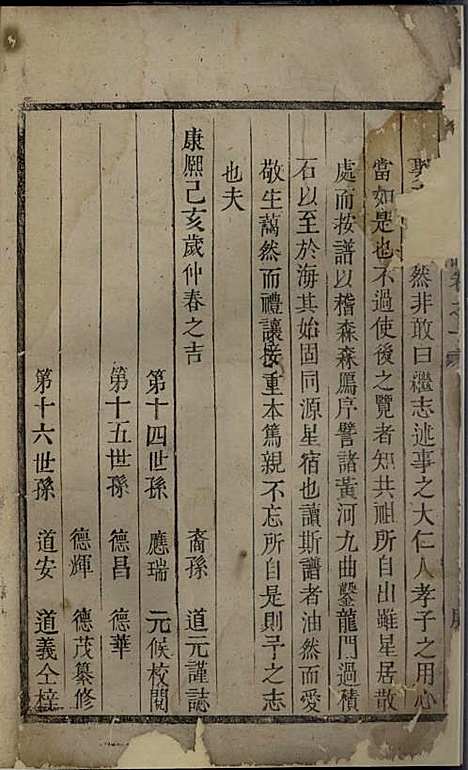 聖
然非敢曰繼志述事之大仁人孝子之用心
當如是也不過使後之覽者知共祖所自出雖星居散
處而按譜以稽森森鴈序譬諸黃河九曲鑿龍門過積
石以至於海其始固同源星宿也讀斯譜者油然而愛
敬生藹然而禮讓接重本篤親不忘所自是則予之志
也夫
康熙己亥歲仲春之吉
裔孫 道元謹誌
第十四世孫 應瑞 元候校閱
第十五世孫 德昌 德華
德輝 德茂纂修
第十六世孫 道安 道義仝梓